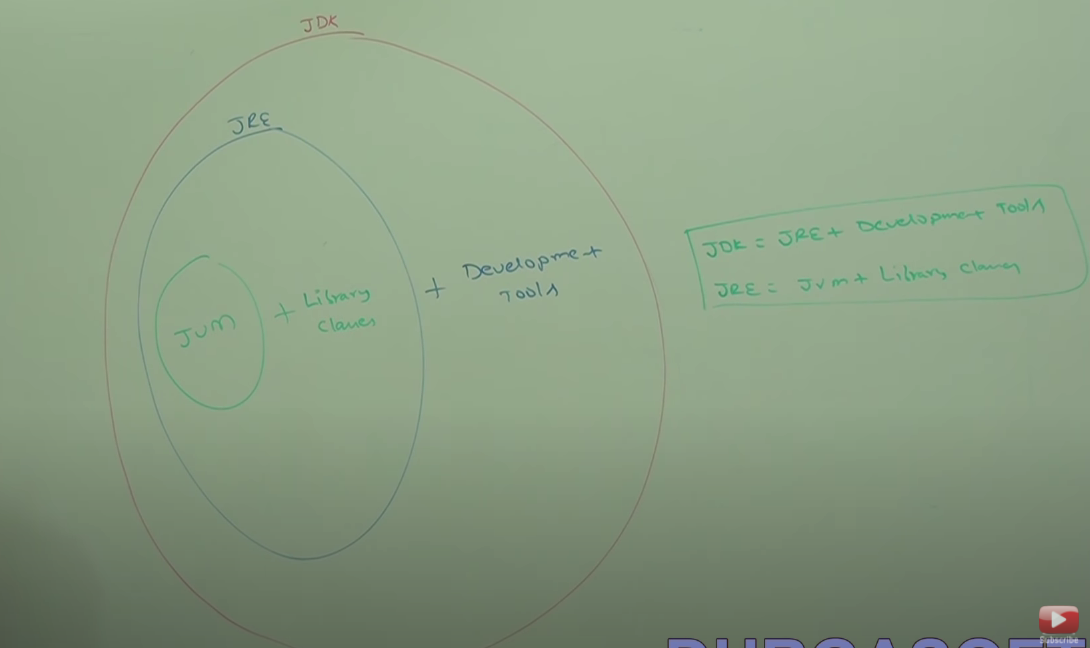 JDK
JRE
JVM
+ Library
classes
+ Development
Tools
JDK = JRE + Development Tools
JRE = JVM + Library classes
Subscribe